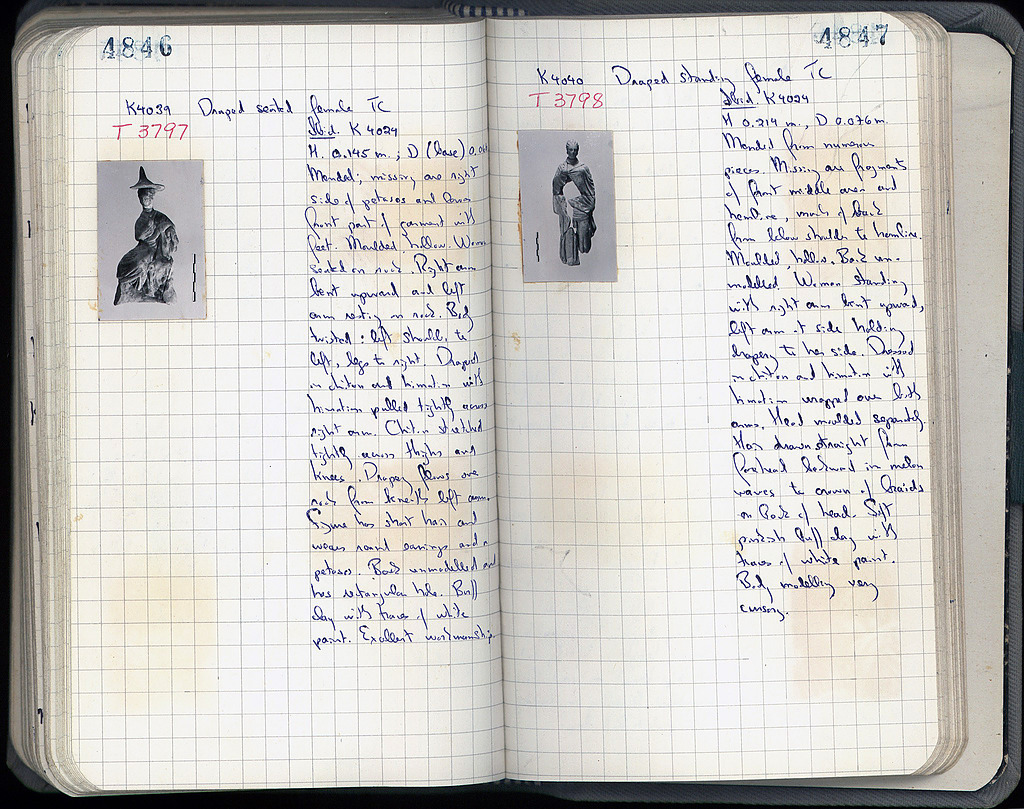 4846
K4039 Draped seated female TC
T 3797
Ibid. K 4029
H. 0.145 m.; D (base) 0.06
Mended; missing are right
side of petasos and lower
front part of garment with
feet. Moulded hollow. Woman
seated on rock. Right arm
bent upward and left
arm resting on rock. Body
twisted: left shoulder to
left, legs to right. Draped
in chiton and himation with
himation pulled tightly across
right arm. Chiton stretched
tightly across thighs and
knees. Drapery flows over
rock from beneath left arm.
Figure has short hair and
wears round earrings and a
petasos. Back unmodelled and
has rectangular hole. Buff
clay with traces of white
paint. Excellent workmanship.
4847
K4040 Draped standing female TC
T 3798
Ibid. K4029
H 0.214 m., D 0.076 m.
Mended from numerous
pieces. Missing are fragments
of front middle area and
hemline, much of back
from below shoulder to hemline.
Moulded hollow. Back un-
modelled. Woman standing
with right arm bent upward,
left arm at side holding
drapery to her side. Dressed
in chiton and himation with
himation wrapped over both
arms. Head moulded separately.
Hair drawn straight from
forehead backward in melon
waves to crown of braids
on back of head. Soft
pinkish buff clay with
traces of white paint.
Body modelling very
cursory.